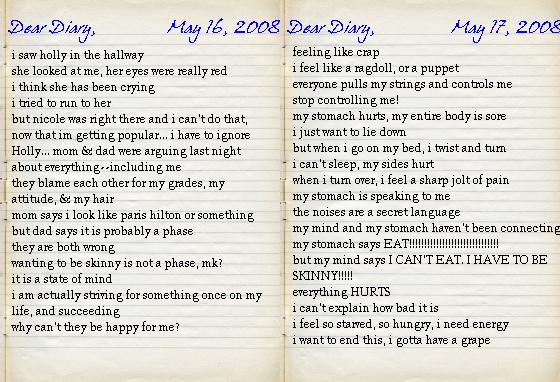 Dear Diary, May 16, 2008
i saw holly in the hallway
she looked at me, her eyes were really red
i think she has been crying
i tried to run to her
but nicole was right there and i can't do that,
now that im getting popular... i have to ignore
Holly... mom & dad were arguing last night
about everything--including me
they blame each other for my grades, my
attitude, & my hair
mom says i look like paris hilton or something
but dad says it is probably a phase
they are both wrong
wanting to be skinny is not a phase, mk?
it is a state of mind
i am actually striving for something once on my
life, and succeeding
why can't they be happy for me?
Dear Diary, May 17, 2008
feeling like crap
i feel like a ragdoll, or a puppet
everyone pulls my strings and controls me
stop controlling me!
my stomach hurts, my entire body is sore
i just want to lie down
but when i go on my bed, i twist and turn
i can't sleep, my sides hurt
when i turn over, i feel a sharp jolt of pain
my stomach is speaking to me
the noises are a secret language
my mind and my stomach haven't been connecting
my stomach says EAT!!!!!!!!!!!!!!!!!!!!!!!!!!!!!!!!
but my mind says I CAN'T EAT. I HAVE TO BE
SKINNY!!!!!
everything HURTS
i can't explain how bad it is
i feel so starved, so hungry, i need energy
i want to end this, i gotta have a grape